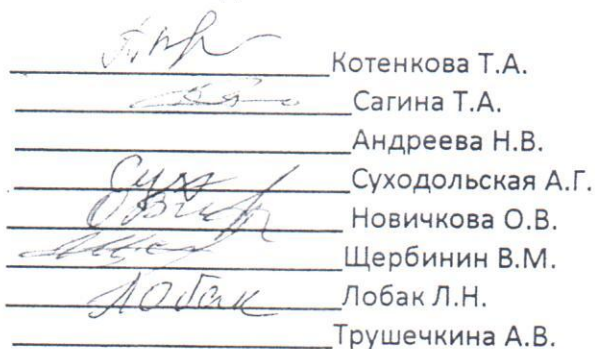 Котенкова Т.А.
Сагина Т.А.
Андреева Н.В.
Суходольская А.Г.
Новичкова О.В.
Щербинин В.М.
Лобак Лобак Л.Н.
Трушечкина А.В.